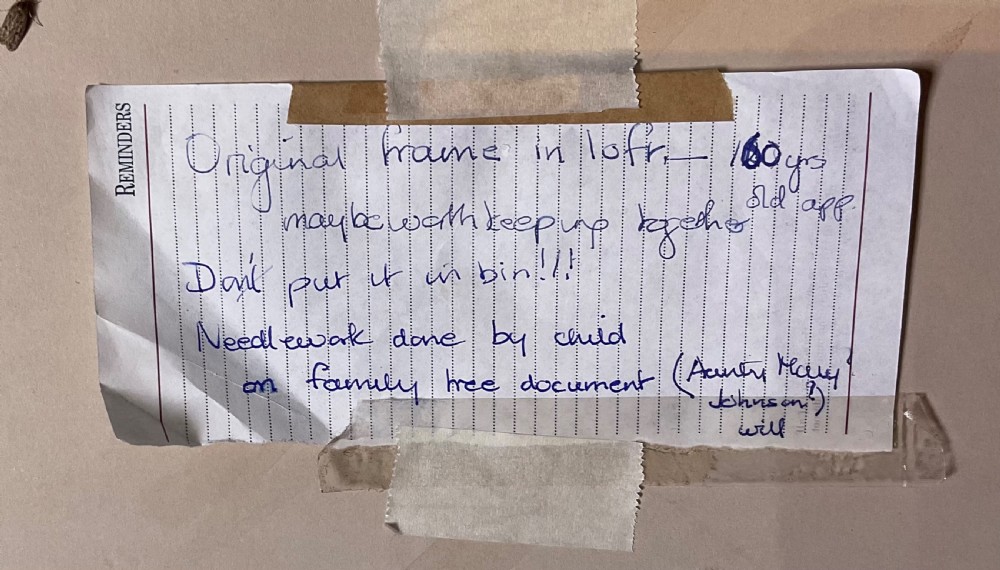 REMINDERS
Original frame in loft — 160 yrs
old app.
maybe worth keeping together
Don't put it in bin!!!
Needlework done by child
on family tree document (Aunty Mary
Johnson?)
will